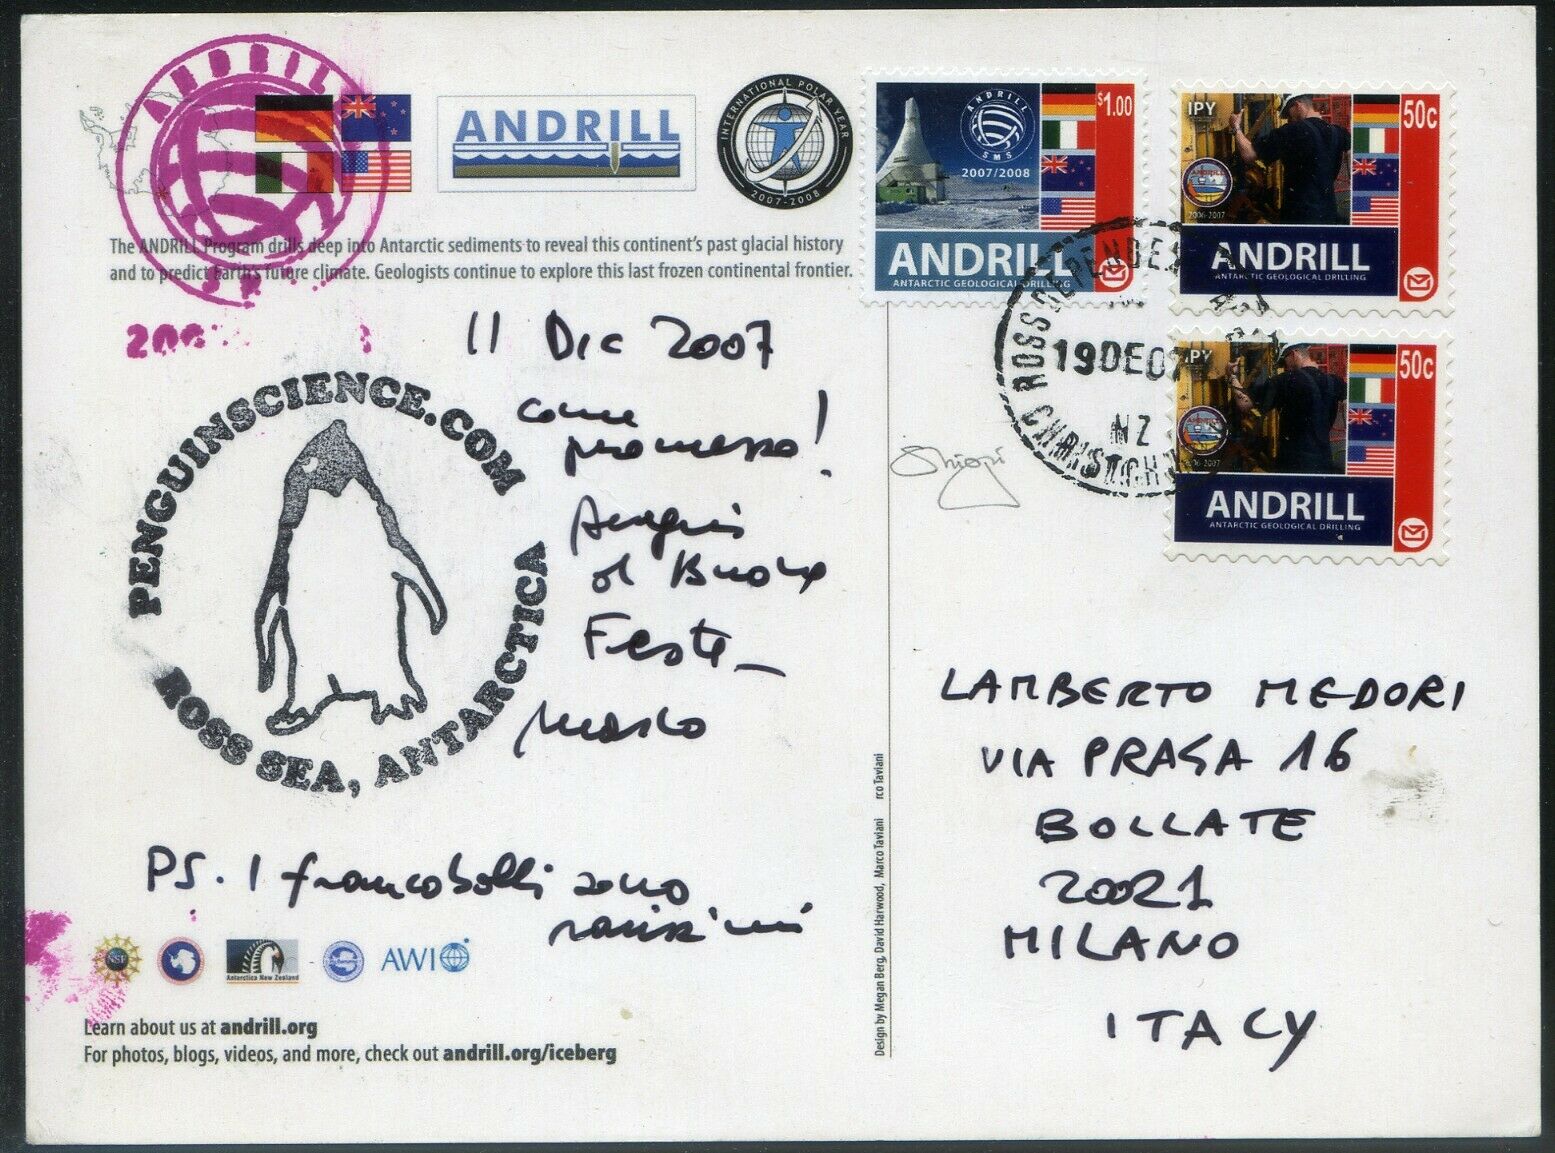 ANDRILL
ANDRILL
INTERNATIONAL POLAR YEAR
2007-2008
The ANDRILL Program drills deep into Antarctic sediments to reveal this continent's past glacial history
and to predict Earth's future climate. Geologists continue to explore this last frozen continental frontier.
$1.00
ANDRILL
SMS
2007/2008
ANDRILL
ANTARCTIC GEOLOGICAL DRILLING
IPY
50c
ANDRILL
2006-2007
ANDRILL
ANTARCTIC GEOLOGICAL DRILLING
IPY
50c
2006-2007
ANDRILL
ANTARCTIC GEOLOGICAL DRILLING
ROSS DEPENDENCY
19DE07
NZ
CHRISTCHURCH
11 Dic 2007
come
promesso!
Auguri
di Buone
Feste
Marco
PENGUINSCIENCE.COM
ROSS SEA, ANTARCTICA
PS. I francobolli sono
rarissimi
LAMBERTO MEDORI
VIA PRAGA 16
BOLLATE
20021
MILANO
ITALY
NSF
Antarctica New Zealand
AWI
Learn about us at andrill.org
For photos, blogs, videos, and more, check out andrill.org/iceberg
Design by Megan Berg, David Harwood, Marco Taviani rco Taviani